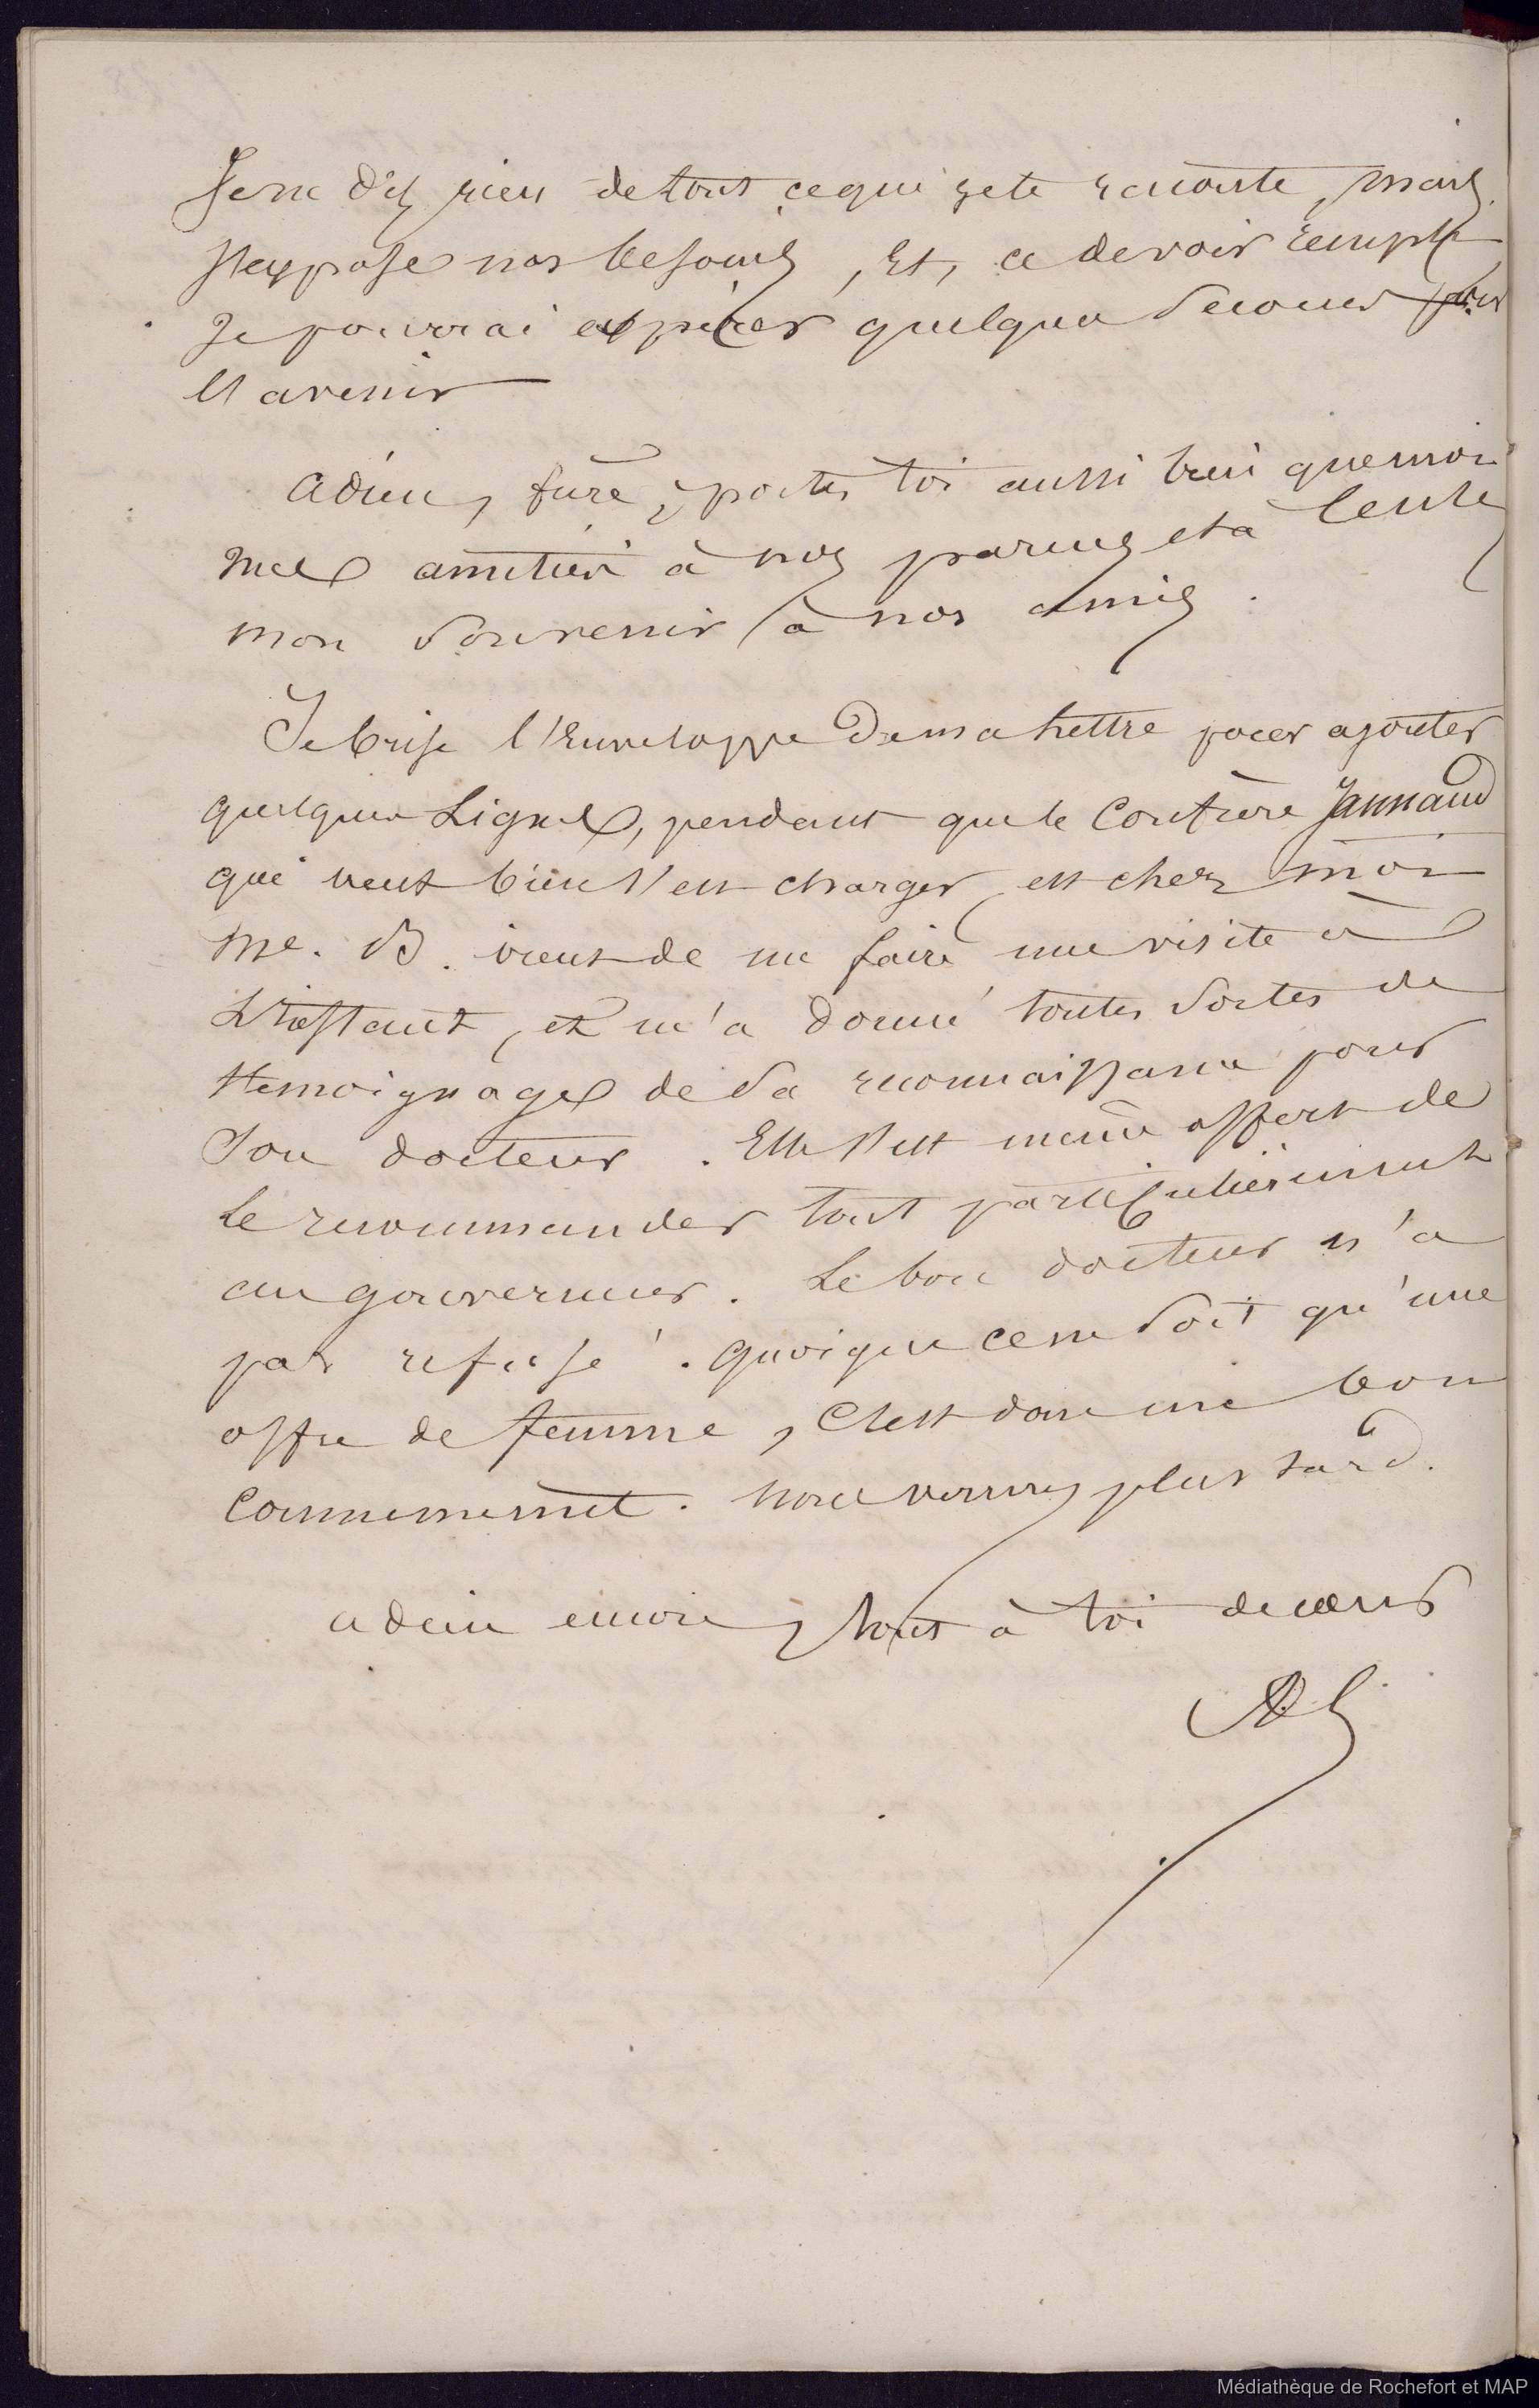 Je ne dis rien de tout ce qui je te raconte, mais
j'expose nos besoins, Et, ce devoir rempli
Je pourrai espèrer quelques secours pour
l'avenir
adieu, frère, portes toi aussi bien que moi
mes amitiés à nos parens et à
mon souvenir à nos amis.
Je brise l'Enveloppe de ma lettre pour ajouter
quelques Lignes, pendant que le Confrère Jannaud
qui veut bien s'en charger, est chez moi
Me. B. vient de me faire une visite à
L'instant, et m'a donné toutes sortes de
témoignages de sa reconnaissance pour
son docteur. Elle s'est même offert de
le recommander tout particulièrement
au gouverneur. Le bon docteur n'a
pas refusé. quoique ce ne soit qu'une
offre de femme, C'est donc un bon
Commencement. nous verrons plus tard.
adieu encore, tout à toi de coeur
Médiathèque de Rochefort et MAP